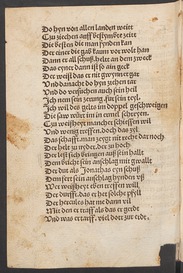 Do hyn von allen landen weitt
Zu ziehen auff bestymbte zeitt
Die besten die man fynden kan
Der einer die gab kaum vor wole han
Dann er all schuß helt an dem zweck
Das eyner dann ist so gar geck
Der weiß das er nit gwynnet gar
Und danacht do hyn zeihen dar
Und do versuchen auch sein heil
Ich nem sein zerung fur sein teyl
Ich wil des gelts im doppel geschweigen
Die saw würt im im ermel schreyen
Zu weißheyt mancher schiessen wil
Und wenig treffen doch das zyl
Das schafft man zeygt nit recht dar noch
Der helt zu nyder der zu hoch
Der lest sich bringen auß
Dem bricht sein anschlag mit
Der dut als Jonathas eyn schuß
Dem fert sein anschlag hynden uß
Wer weißheyt eben treffen will
Der durfft das er het solche pfyl
Der hercules hat me dann vil
Mit den er traff als das er gerdt
Und was er traff viel dott zur erdt